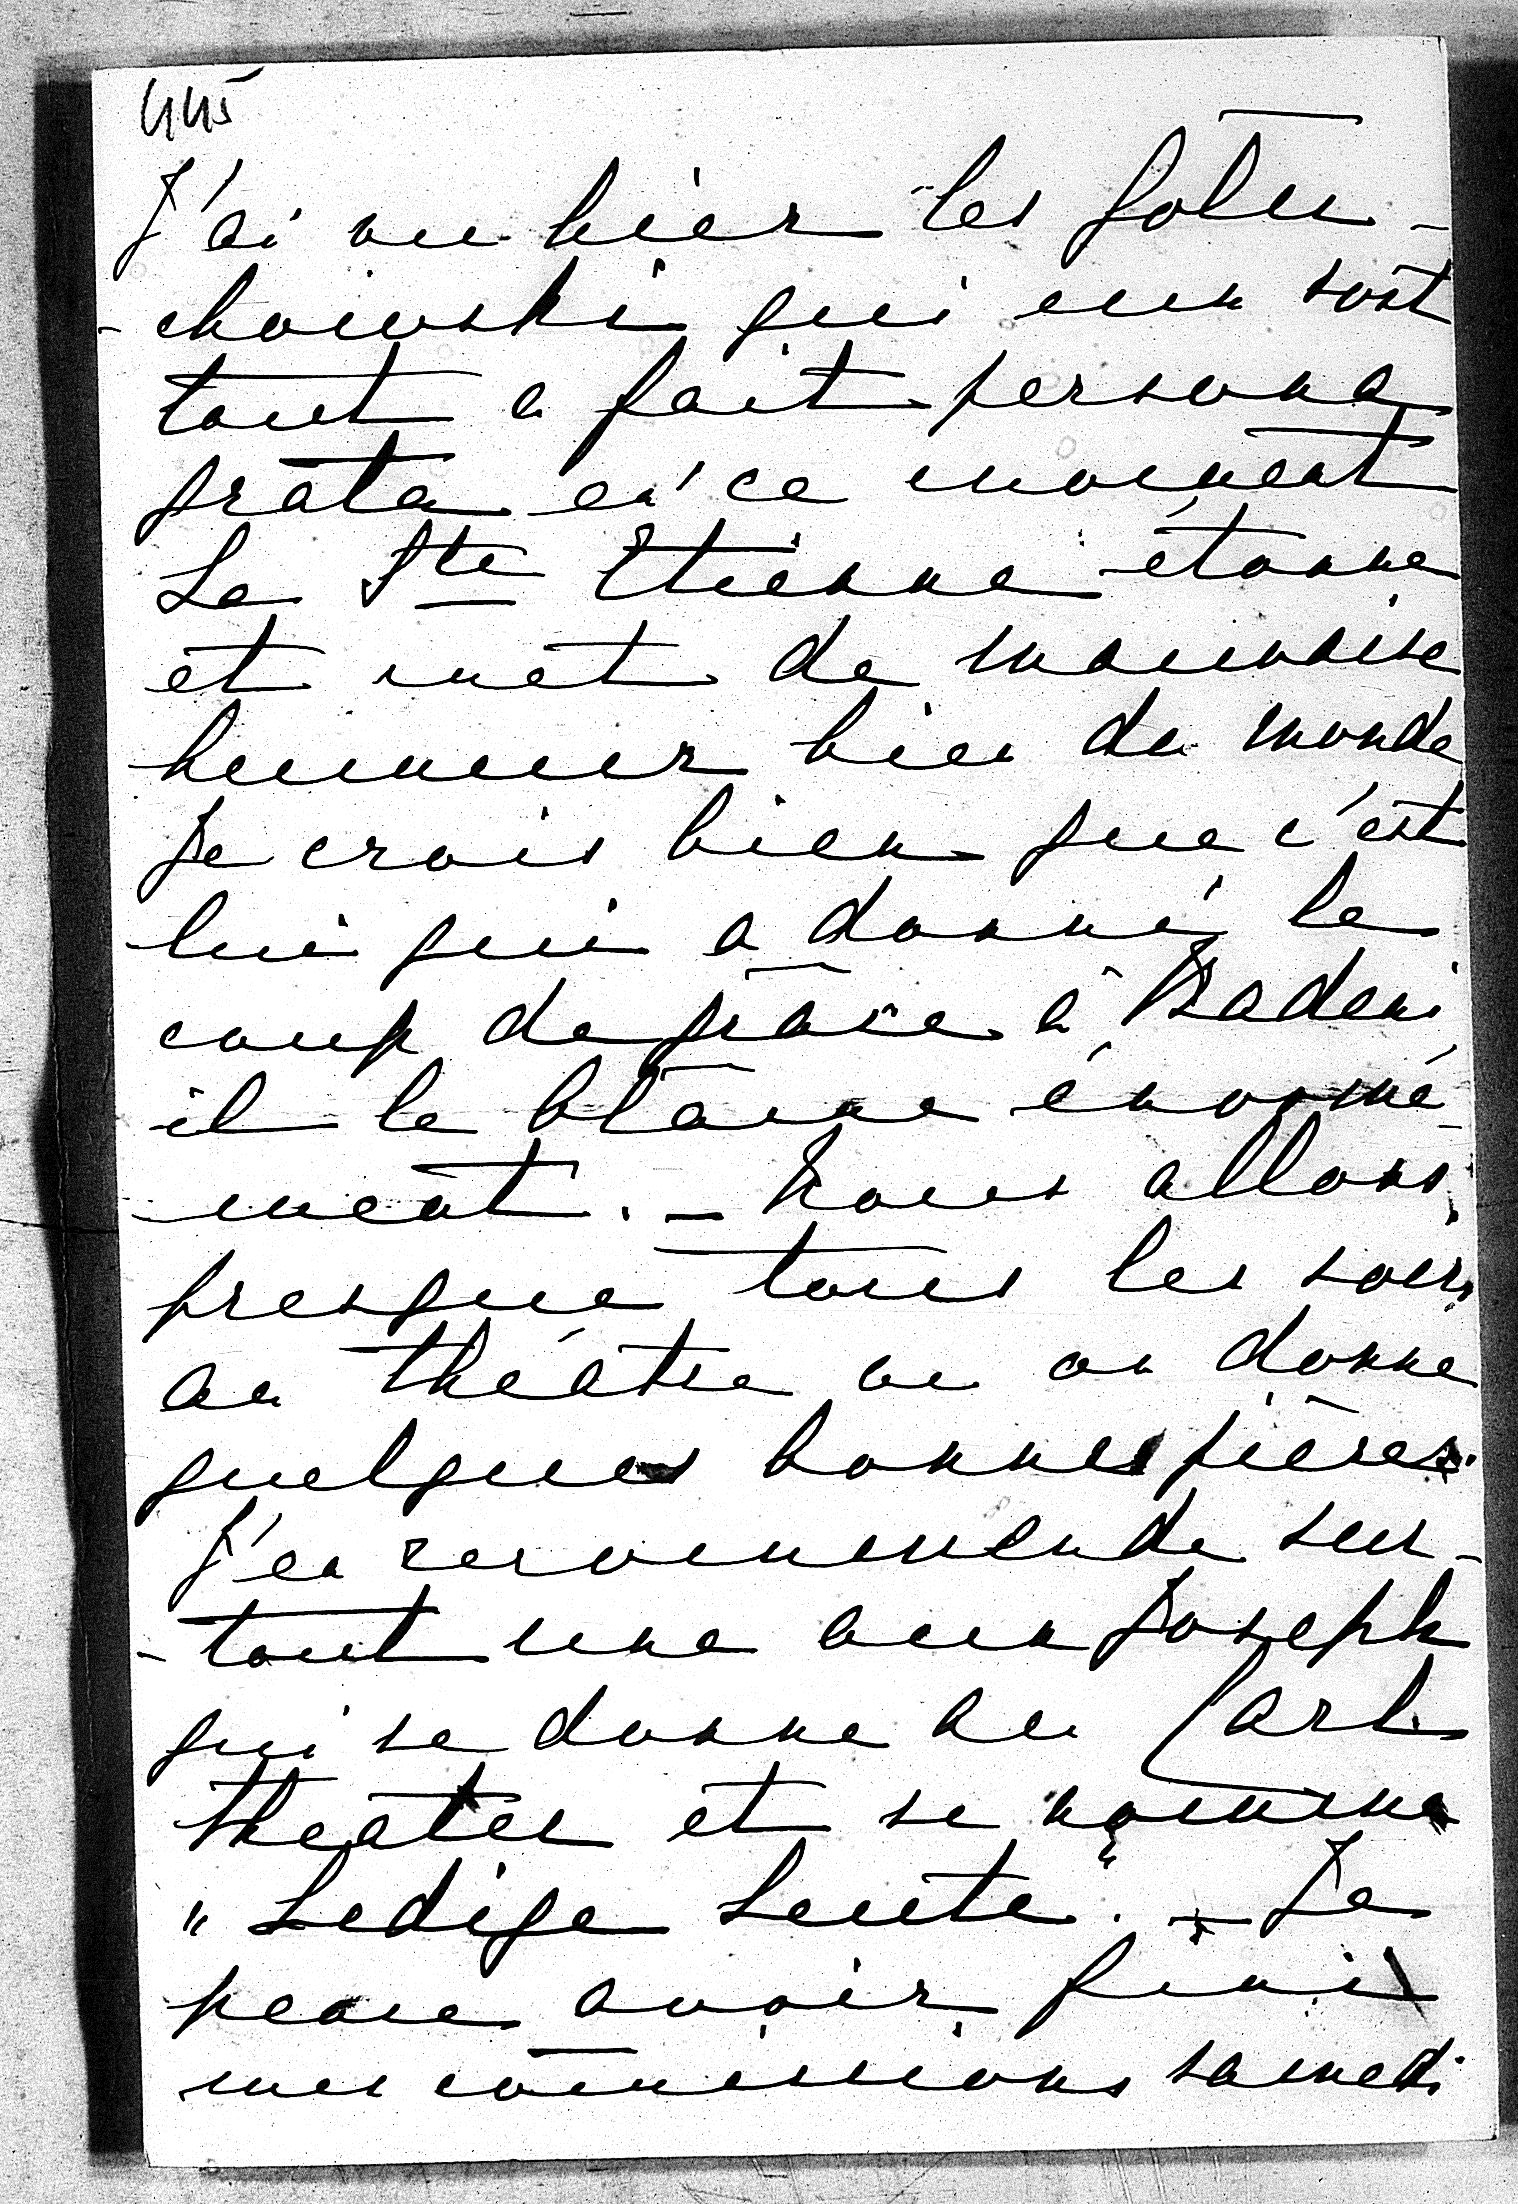 445
J'ai vu hier les Golu-
-chowski qui eux sont
tout a fait persona
grata en ce moment
La Ste Etienne étonne
et met de mauvaise
humeur bien du monde
Je crois bien que c'est
lui qui a donné le
coup de grâce à Badeni
il le blâme énormé-
-ment. - Nous allons
presque tous les soirs
au théâtre ou on donne
quelques bonnes pièces.
J'en recommende sur-
-tout une aux Joseph
qui se donne au Carl
theater et se nomme
"Ledige Leute". - Je
pense avoir fini
mes comissions samedi